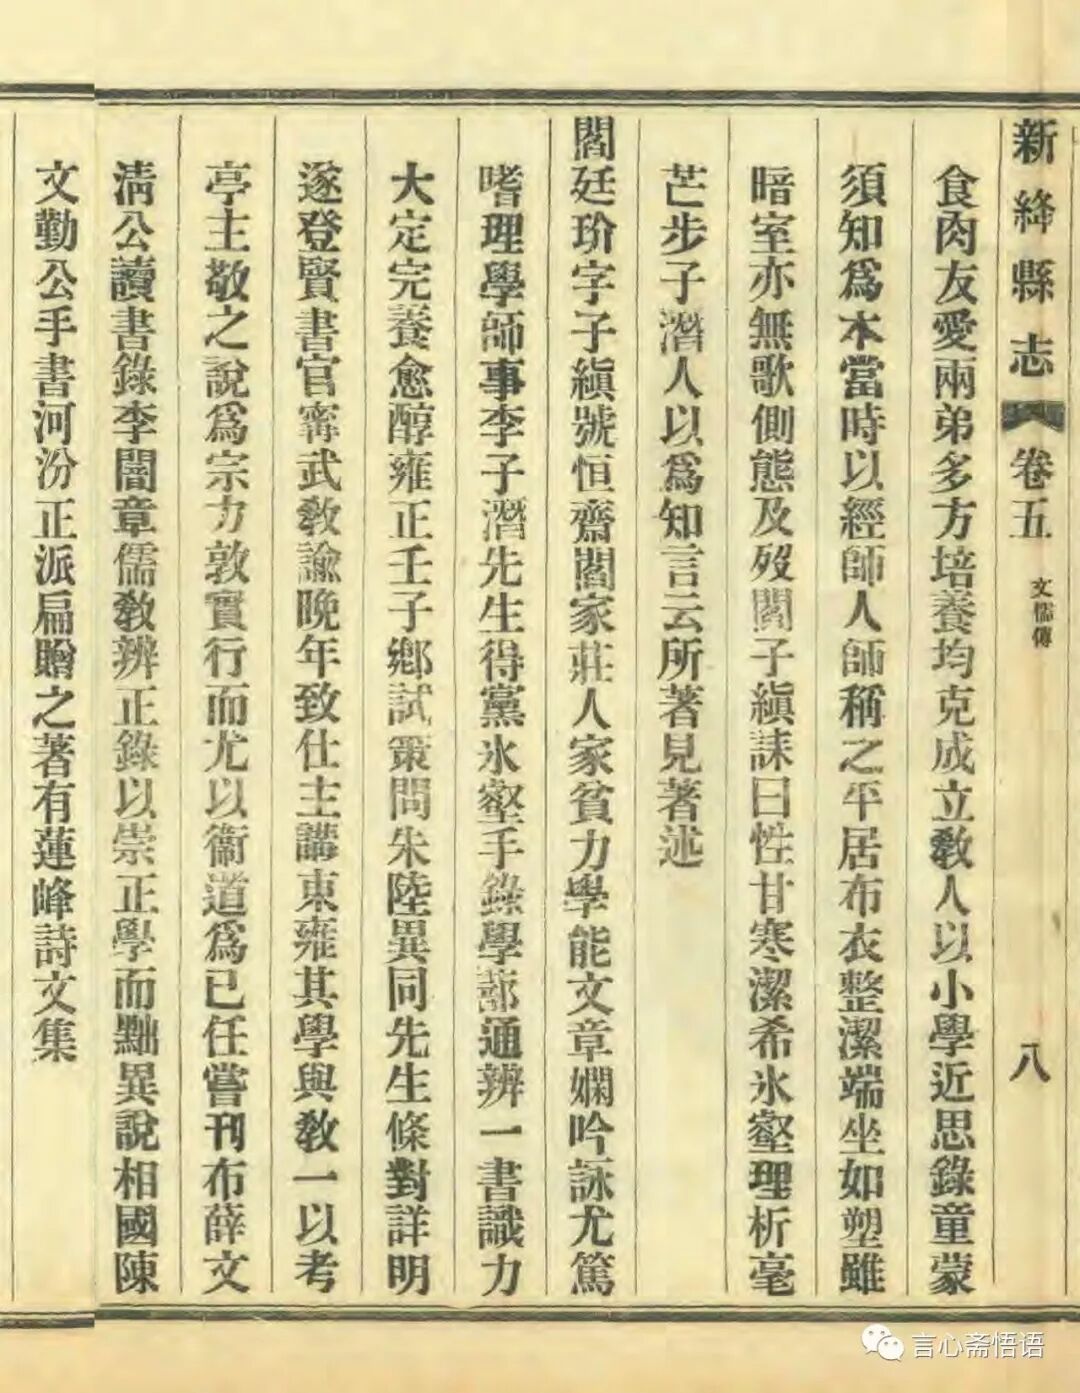 新絳縣志 卷五 文儒傳 八
食肉友愛兩弟多方培養均克成立敎人以小學近思錄童蒙
須知爲本當時以經師人師稱之平居布衣整潔端坐如塑雖
暗室亦無歌側態及歿閻子縝誄曰性甘寒潔希氷壑理析毫
芒步子潛人以爲知言云所著見著述
閻廷玠字子縝號恒齋閻家莊人家貧力學能文章嫻吟詠尤篤
嗜理學師事李子潛先生得黨氷壑手錄學蔀通辨一書識力
大定完養愈醇雍正壬子鄉試策問朱陸異同先生條對詳明
遂登賢書官寗武敎諭晚年致仕主講東雍其學與敎一以考
亭主敬之說爲宗力敦實行而尤以衞道爲己任嘗刊布薛文
淸公讀書錄李闇章儒敎辨正錄以崇正學而黜異說相國陳
文勤公手書河汾正派扁贈之著有蓮峰詩文集
言心斋悟语